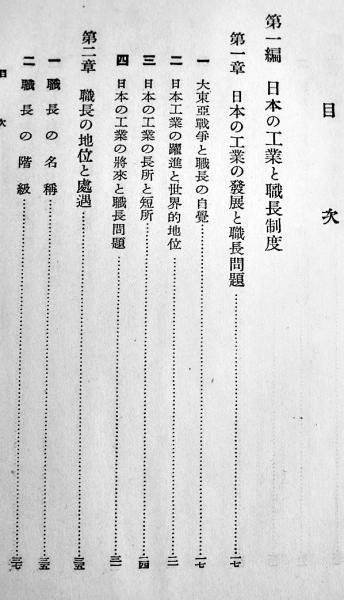 目次
第一編 日本の工業と職長制度
第一章 日本の工業の發展と職長問題……一七
一 大東亞戰爭と職長の自覺……一七
二 日本工業の躍進と世界的地位……二一
三 日本の工業の長所と短所……二四
四 日本の工業の將來と職長問題……三一
第二章 職長の地位と處遇……三五
一 職長の名稱……三五
二 職長の階級……三七
目次